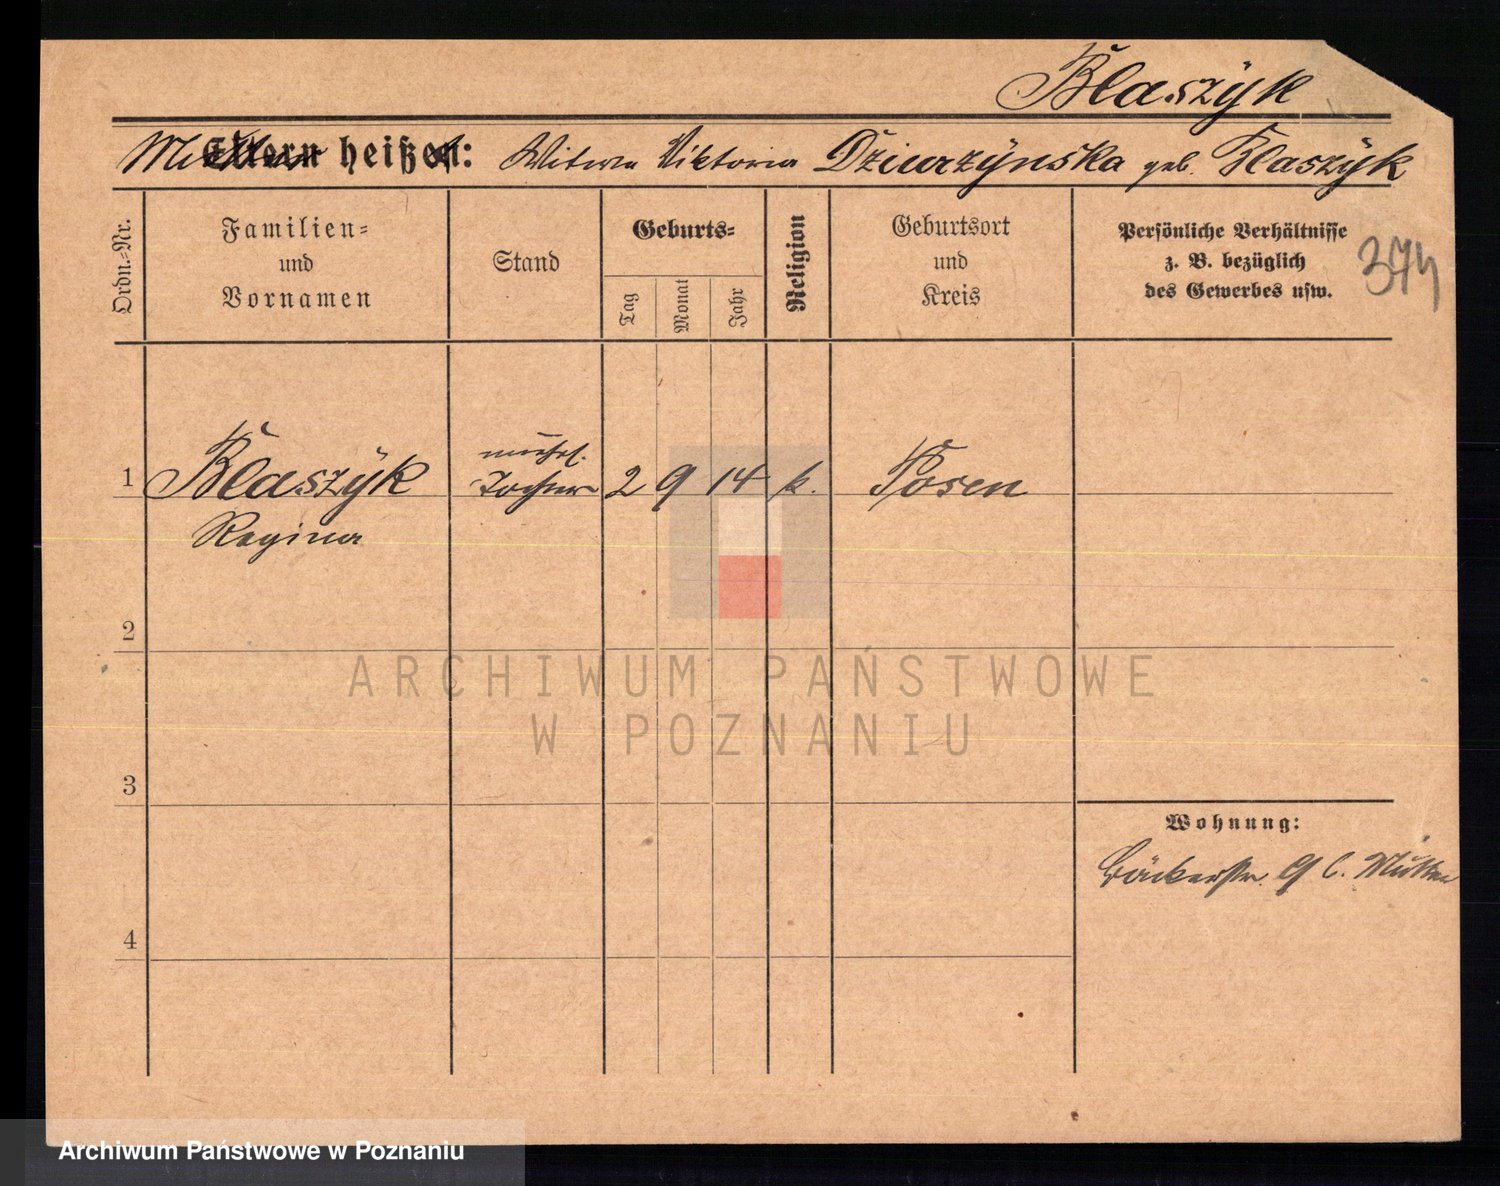 Blaszÿk
Mutter heißt: Witwe Viktoria Dziurzÿnska geb. Blaszÿk
Ordn.=Nr.
Familien=
und
Vornamen
Stand
Geburts=
Tag
Monat
Jahr
Religion
Geburtsort
und
Kreis
Persönliche Verhältnisse
z. B. bezüglich
des Gewerbes usw.
374
1 Blaszÿk unehel. Tochter 2 9 14 k. Posen
Regina
2
3
4
Wohnung:
Bäckerstr. 9 b. Mutter
ARCHIWUM PAŃSTWOWE
W POZNANIU
Archiwum Państwowe w Poznaniu